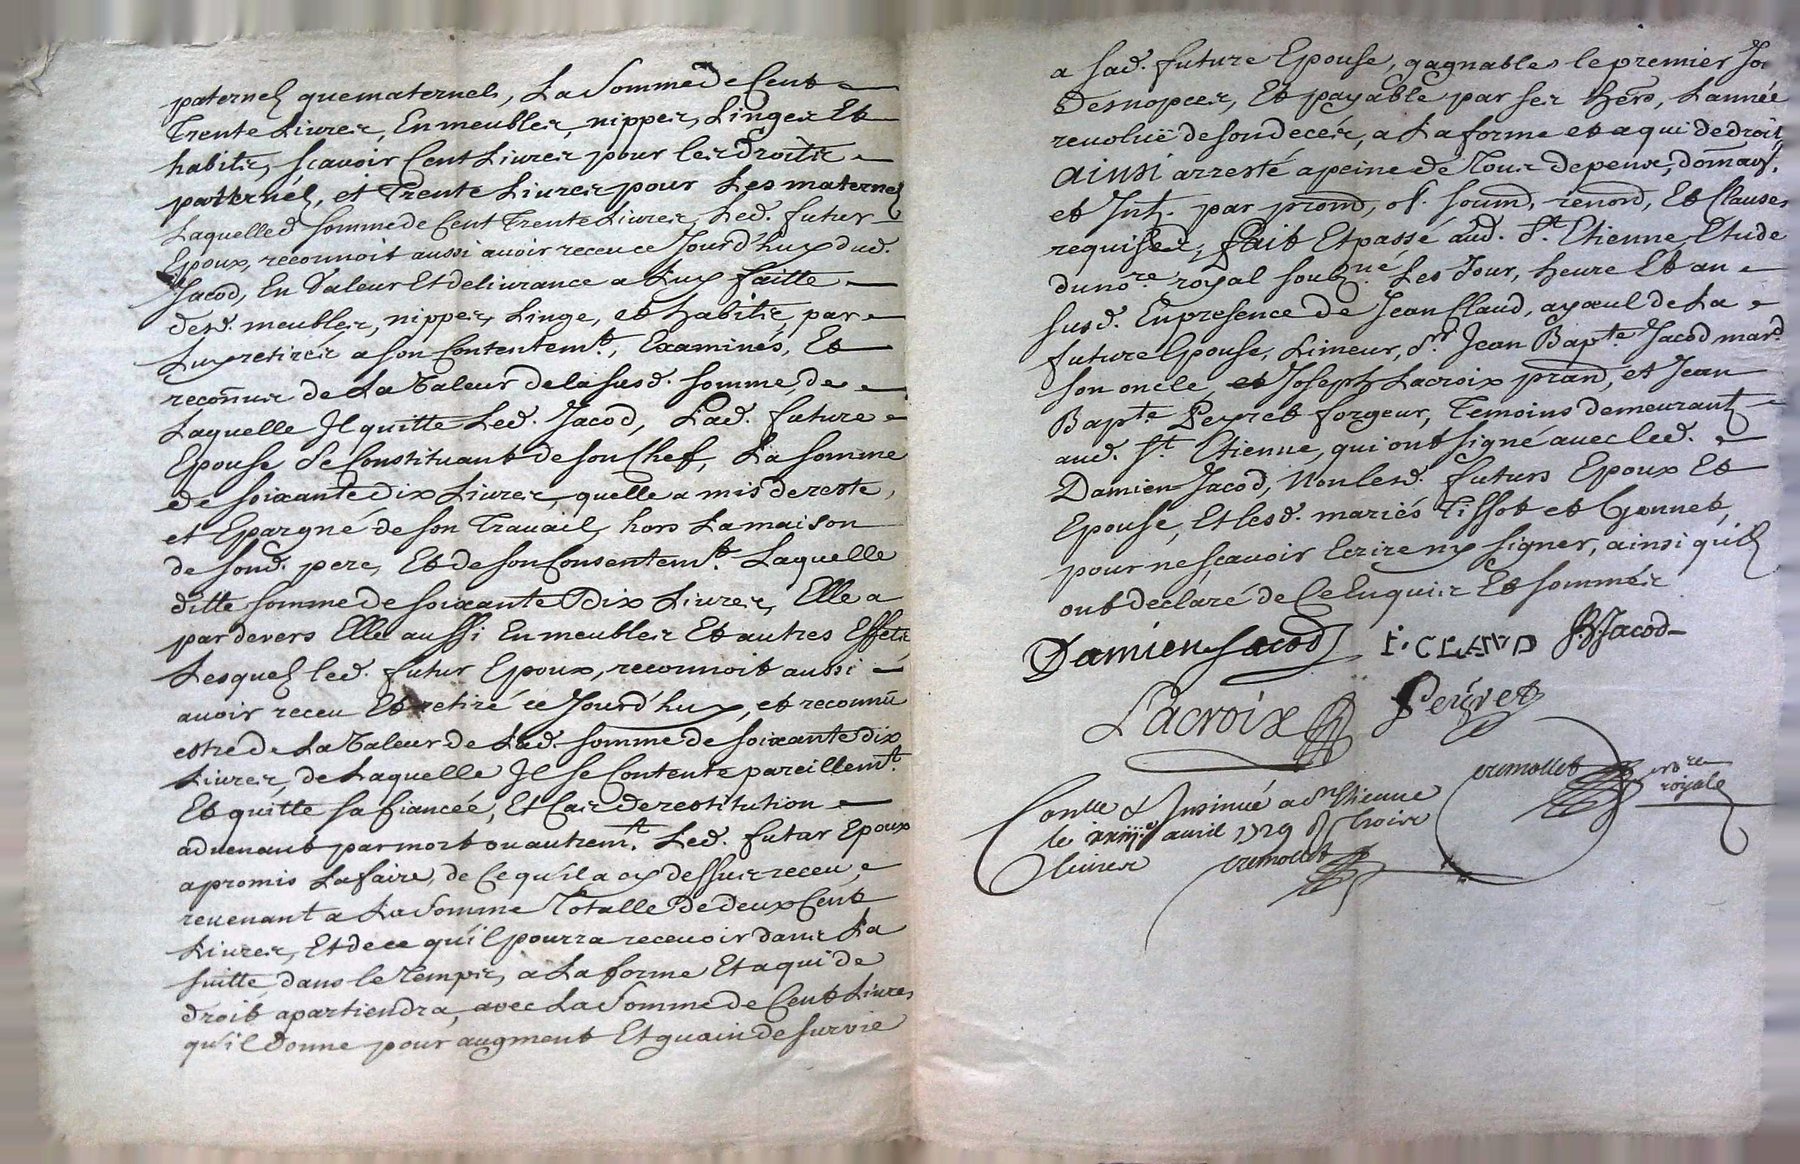 paternel que maternel, La Somme de Cent
Trente Livres, En meubles, nippes, Linges Et
habits, sçavoir Cent Livres pour les droits
paternel, et Trente Livres pour Les maternel
Laquelle d. somme de Cent Trente Livres, Led. futur
Epoux, reconnoit aussi avoir receu ce Jourd'huy dud.
Jacod, En Valeur Et delivrance a Luy faitte
desd. meubles, nippes, Linge, et habits, par
Luy retirés a son Contentemt., Examinés, Et
reconnus de La Valeur de la susd. somme, de
Laquelle Il quitte Led. Jacod, Lad. future
Epouse Se Constituant de son Chef, La somme
de soixante dix Livres, quelle a mis de reste,
et Epargné de son Travail, hors La maison
de sond. pere, Et de son Consentemt. Laquelle
ditte somme de soixante Dix Livres, Elle a
par devers Elle aussi En meubles Et autres Effets
Lesquel led. futur Epoux, reconnoit aussi
avoir receu Et retiré ce Jourd'huy, et reconnu
estre de La Valeur de Lad. somme de soixante dix
Livres, de Laquelle Il se Contente pareillemt.
Et quitte sa fiancée, Et Cas de restitution
advenant par mort ou autremt. Led. futur Epoux
a promis La faire, de Ce qu'il a cy dessus receu,
revenant a La Somme Totalle De deux Cent
Livres, Et de ce qu'il pourra recevoir dans La
suitte dans le Temps, a La forme Et a qui de
droit apartiendra, avec La Somme de Cent Livres
qu'il donne pour augment Et guain de survie
a sad. future Epouse, gagnables le premier Jo
Desnopces, Et payable par ses hers, L'année
revoluë de son decés, a La forme et a qui de droit,
ainsi arresté a peine de Tous depens, domag.
et Int. par promd, ob. soumd, renond, Et Clauses
requises, fait Et passé aud. St. Etienne, Etude
du nore. royal soubzné. Les Jour, heure Et an
susd. En presence de Jean Claud, ayaeul de La
future Epouse, Limeur, Sr. Jean Bapte Jacod mard
son oncle et Joseph Lacroix prand, et Jean
Bapte Peyret forgeur, Temoins demeurantz
aud. St. Etienne, qui ont signé avec led.
Damien Jacod, Non lesd. futurs Epoux Et
Epouse, Et lesd. mariés Tissot et Gonnet,
pour ne sçavoir Ecrire ny signer, ainsi qu'ils
ont declaré de Ce Enquis Et sommés
Damien Jacod I·CLAVD JBJacod
Lacroix Peyret
crimollet nore
royale
Conlle & Insinué a St Etienne
le avril 1729 R Trois
livres crimollet